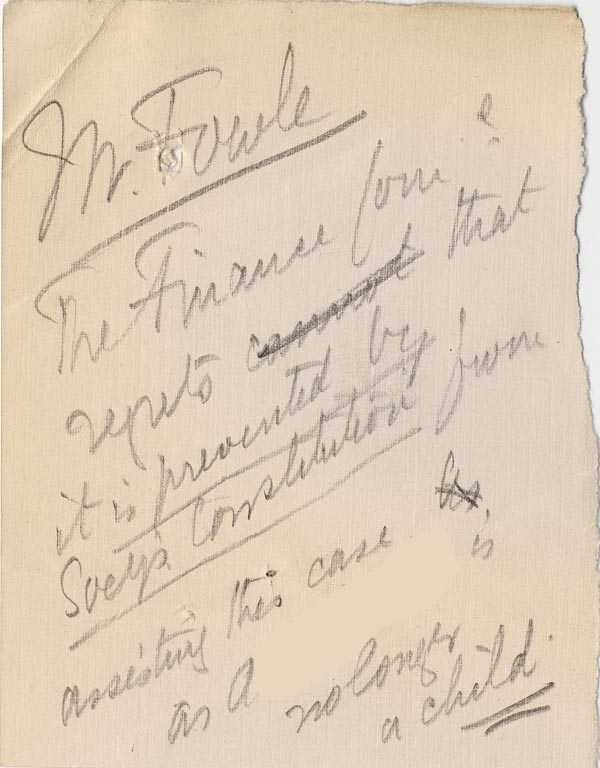 Mr. Fowle
The Finance Com:ee
regrets cannot that
it is prevented by
Socy's Constitution from
assisting this case as
as A is
no longer
a child.